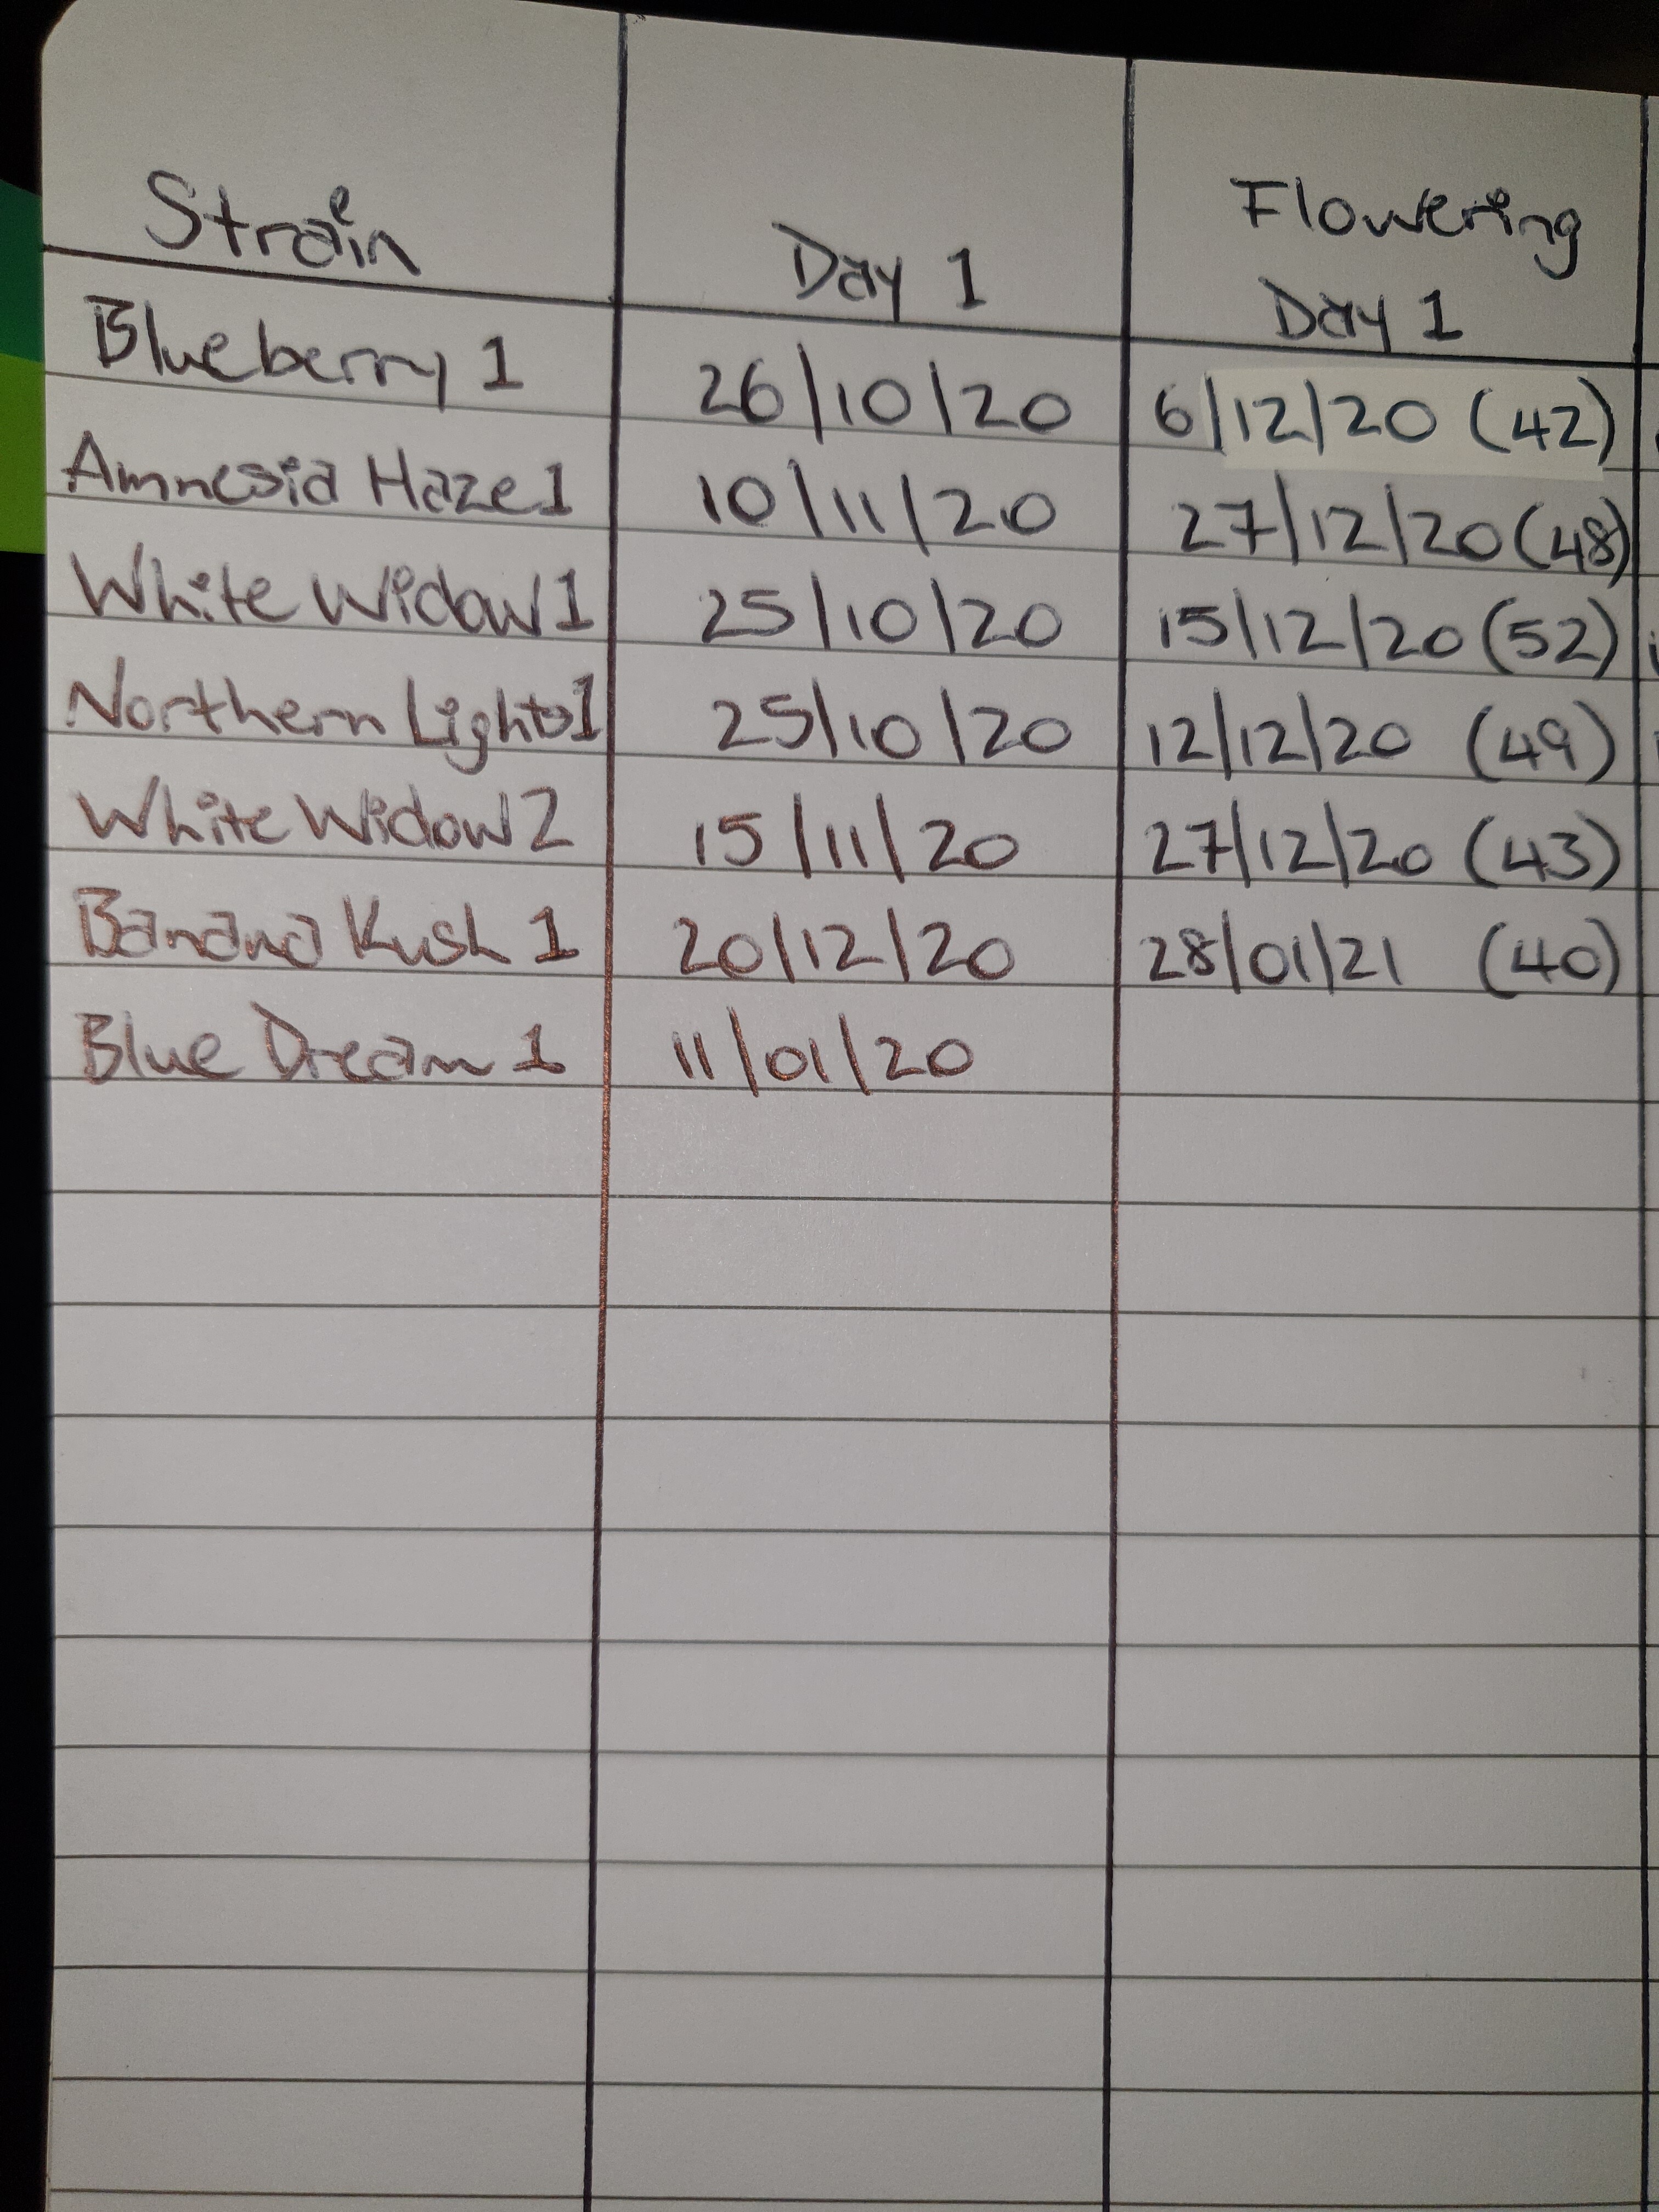 Strain Day 1 Flowering Day 1
Blueberry 1 26/10/20 6/12/20 (42)
Amnesia Haze 1 10/11/20 27/12/20 (48)
White Widow 1 25/10/20 15/12/20 (52)
Northern Lights 1 25/10/20 12/12/20 (49)
White Widow 2 15/11/20 27/12/20 (43)
Banana Kush 1 20/12/20 28/01/21 (40)
Blue Dream 1 11/01/20